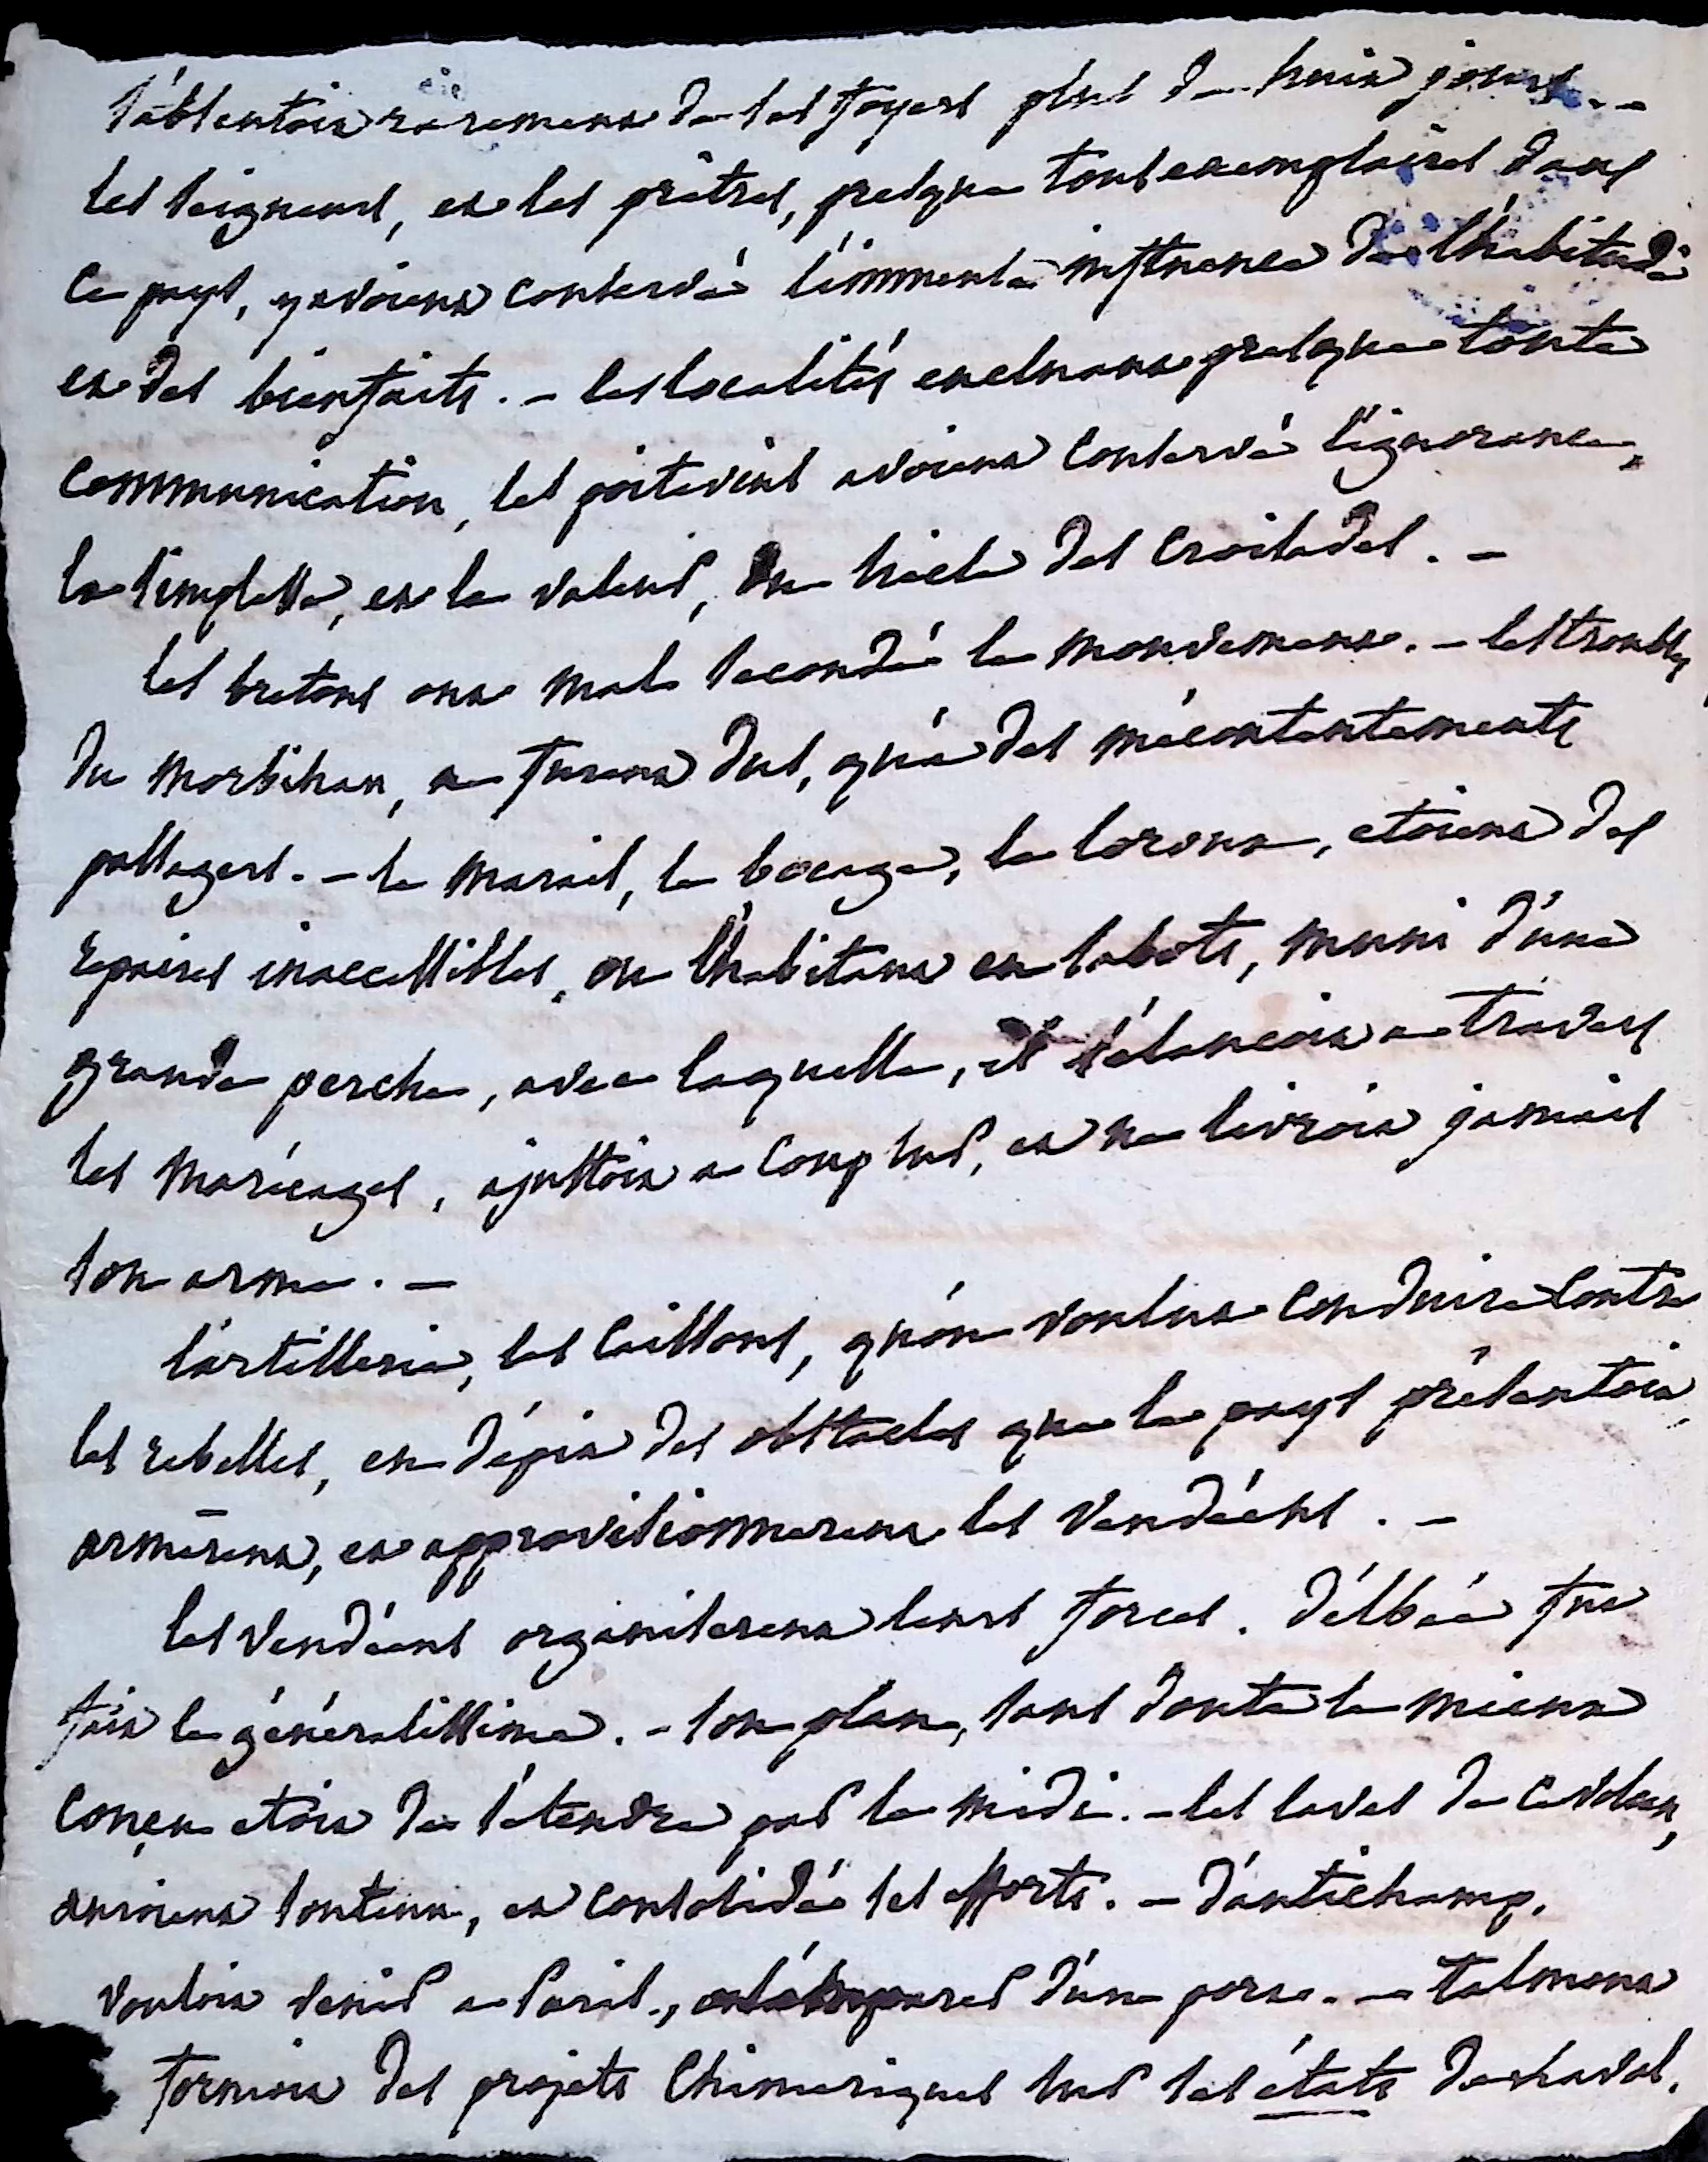 s'absentoit rarement de ses foyers plus de huit jours. -
les seigneurs, et les prêtres, presque tous exemplaires dans
ce pays, y avoient conservé l'immense influence de l'habitude
et des bienfaits. - les localités excluant presque toute
communication, les poitevins avoient conservé l'ignorance,
la simplesse, et la valeur, du siecle des croisades. -
les bretons ont mal secondé le mouvement. - les troubles
du morbihan, ne furent dus, qu'a des mécontentements
passagers. - le marais, le bocage, le loroux, etoient des
repaires inaccessibles, ou l'habitant en sabots, muni d'une
grande perche, avec laquelle, il s'élançoit a travers
les marécages, ajustoit a coup sur, et ne livroit jamais
son arme. -
l'artillerie, les caissons, qu'on voulut conduire contre
les rebelles, en dépit des obstacles que le pays présentoit
armerent, et approvisionnerent les vendéens. -
les vendéens organiserent leurs forces. d'élbée fut
fait le généralissime. - son plan, sans doute le mieux
conçu etoit de s'étendre par le midi. - les laves de ce volcan,
auroient soutenu, et consolidé ses efforts. - d'autichamp,
vouloit venir a Paris, d'un port. - talmont
formoit des projets chimeriques sur ses états de laval.